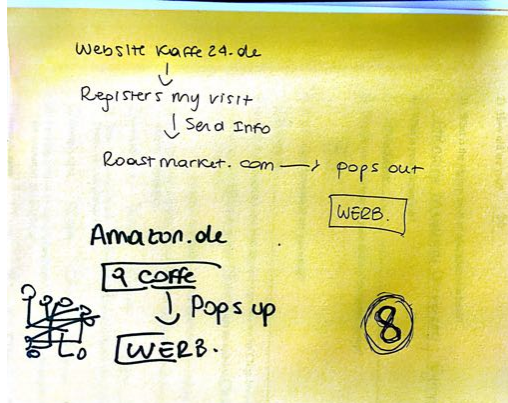 Website Kaffe24.de
Registers my visit
Send Info
Roastmarket.com → pops out
WERB.
Amazon.de
coffe
Pops up
WERB.
8